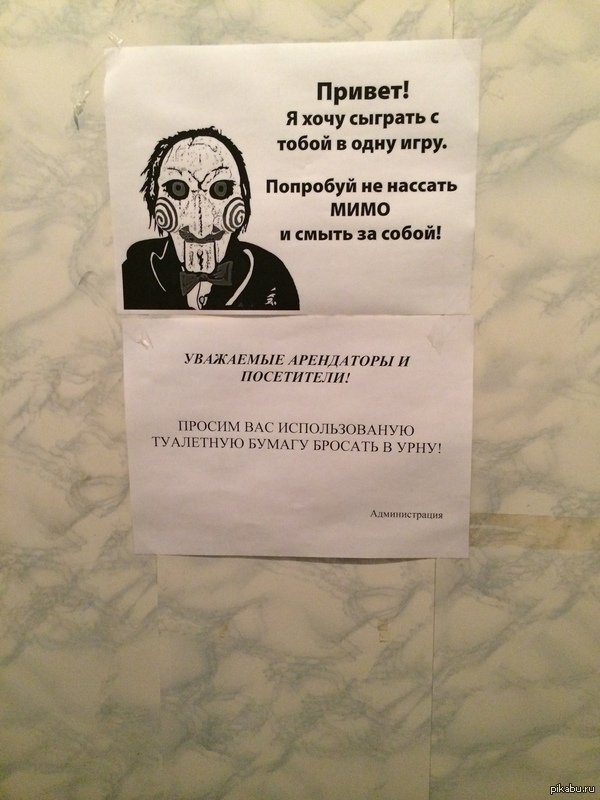 Привет!
Я хочу сыграть с
тобой в одну игру.
Попробуй не нассать
МИМО
и смыть за собой!
УВАЖАЕМЫЕ АРЕНДАТОРЫ И
ПОСЕТИТЕЛИ!
ПРОСИМ ВАС ИСПОЛЬЗОВАНУЮ
ТУАЛЕТНУЮ БУМАГУ БРОСАТЬ В УРНУ!
Администрация
pikabu.ru